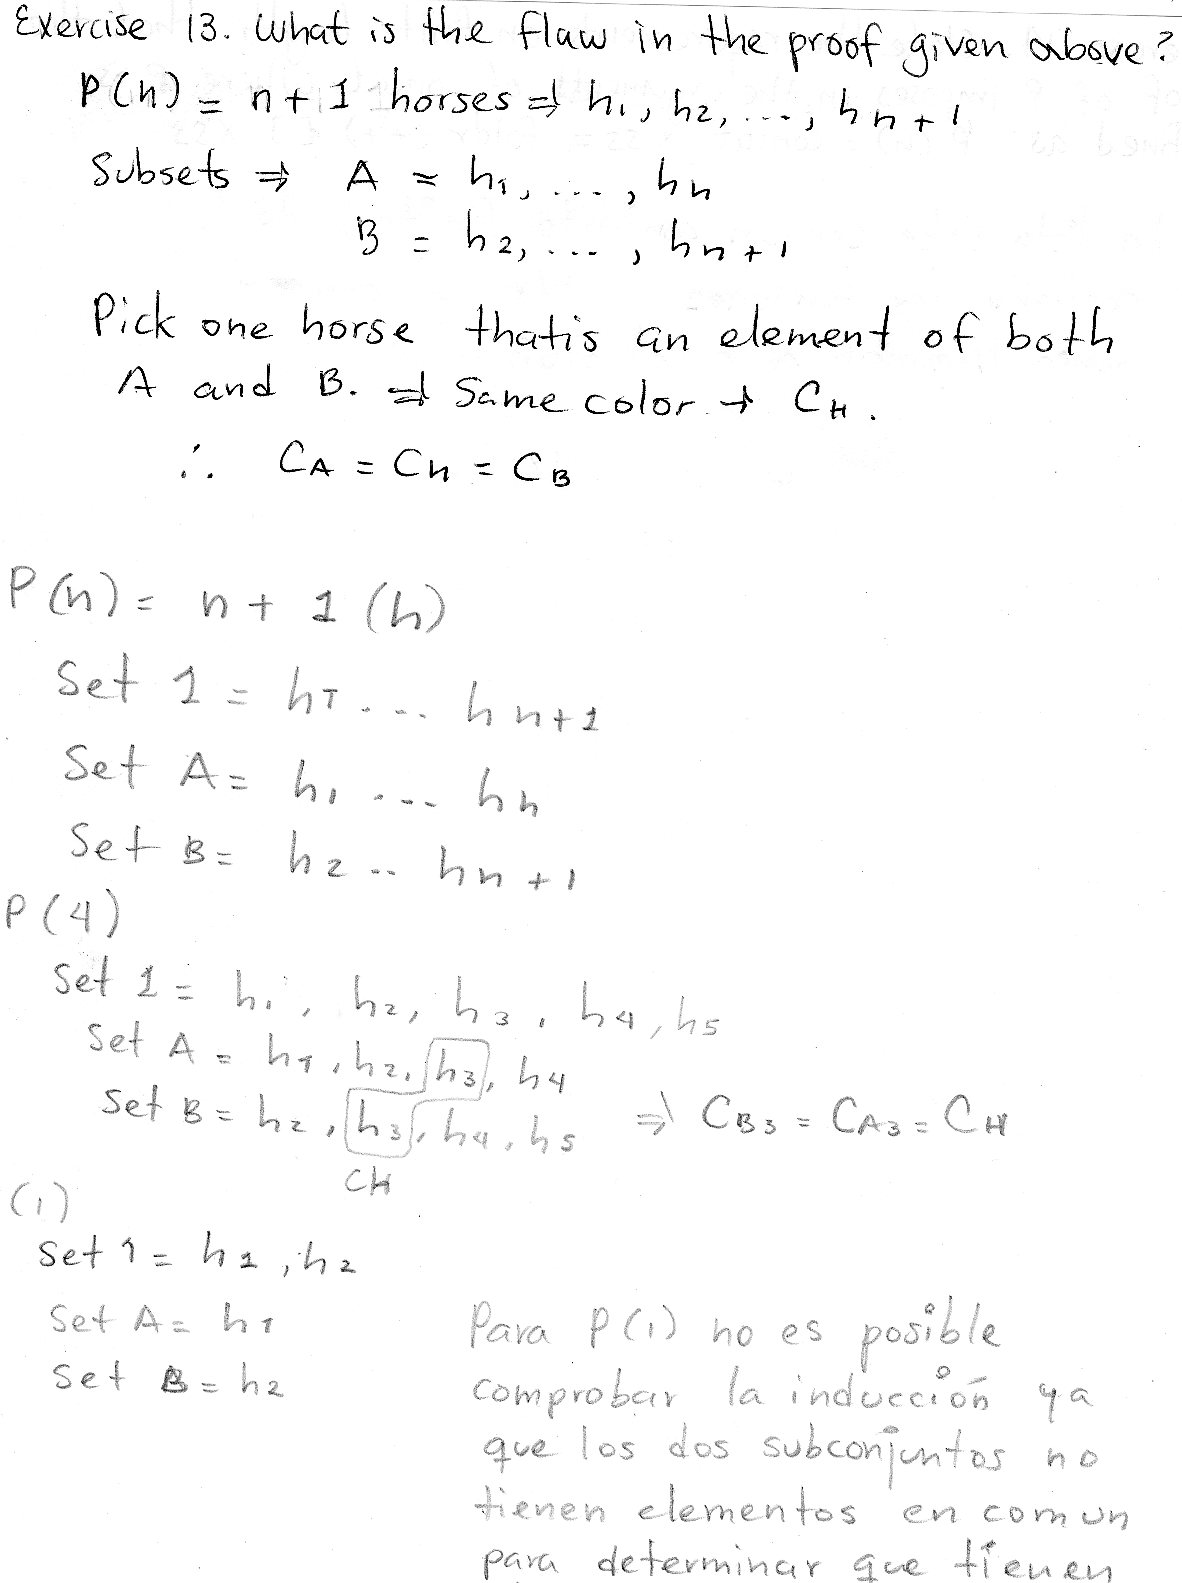 Exercise 13. What is the flaw in the proof given above?
P(n) = n + 1 horses ⇒ h1, h2, ..., hn+1
Subsets ⇒ A = h1, ..., hn
B = h2, ..., hn+1
Pick one horse that is an element of both
A and B. ⇒ Same color → CH.
∴ CA = CH = CB
P(n) = n + 1 (h)
Set 1 = h1 ... hn+1
Set A = h1 ... hn
Set B = h2 .. hn+1
P(4)
Set 1 = h1, h2, h3, h4, h5
Set A = h1, h2, h3, h4
Set B = h2, h3, h4, h5 ⇒ CB3 = CA3 = CH
CH
(1)
Set 1 = h1, h2
Set A = h1
Set B = h2
Para P(1) no es posible
comprobar la inducción ya
que los dos subconjuntos no
tienen elementos en comun
para determinar que tienen